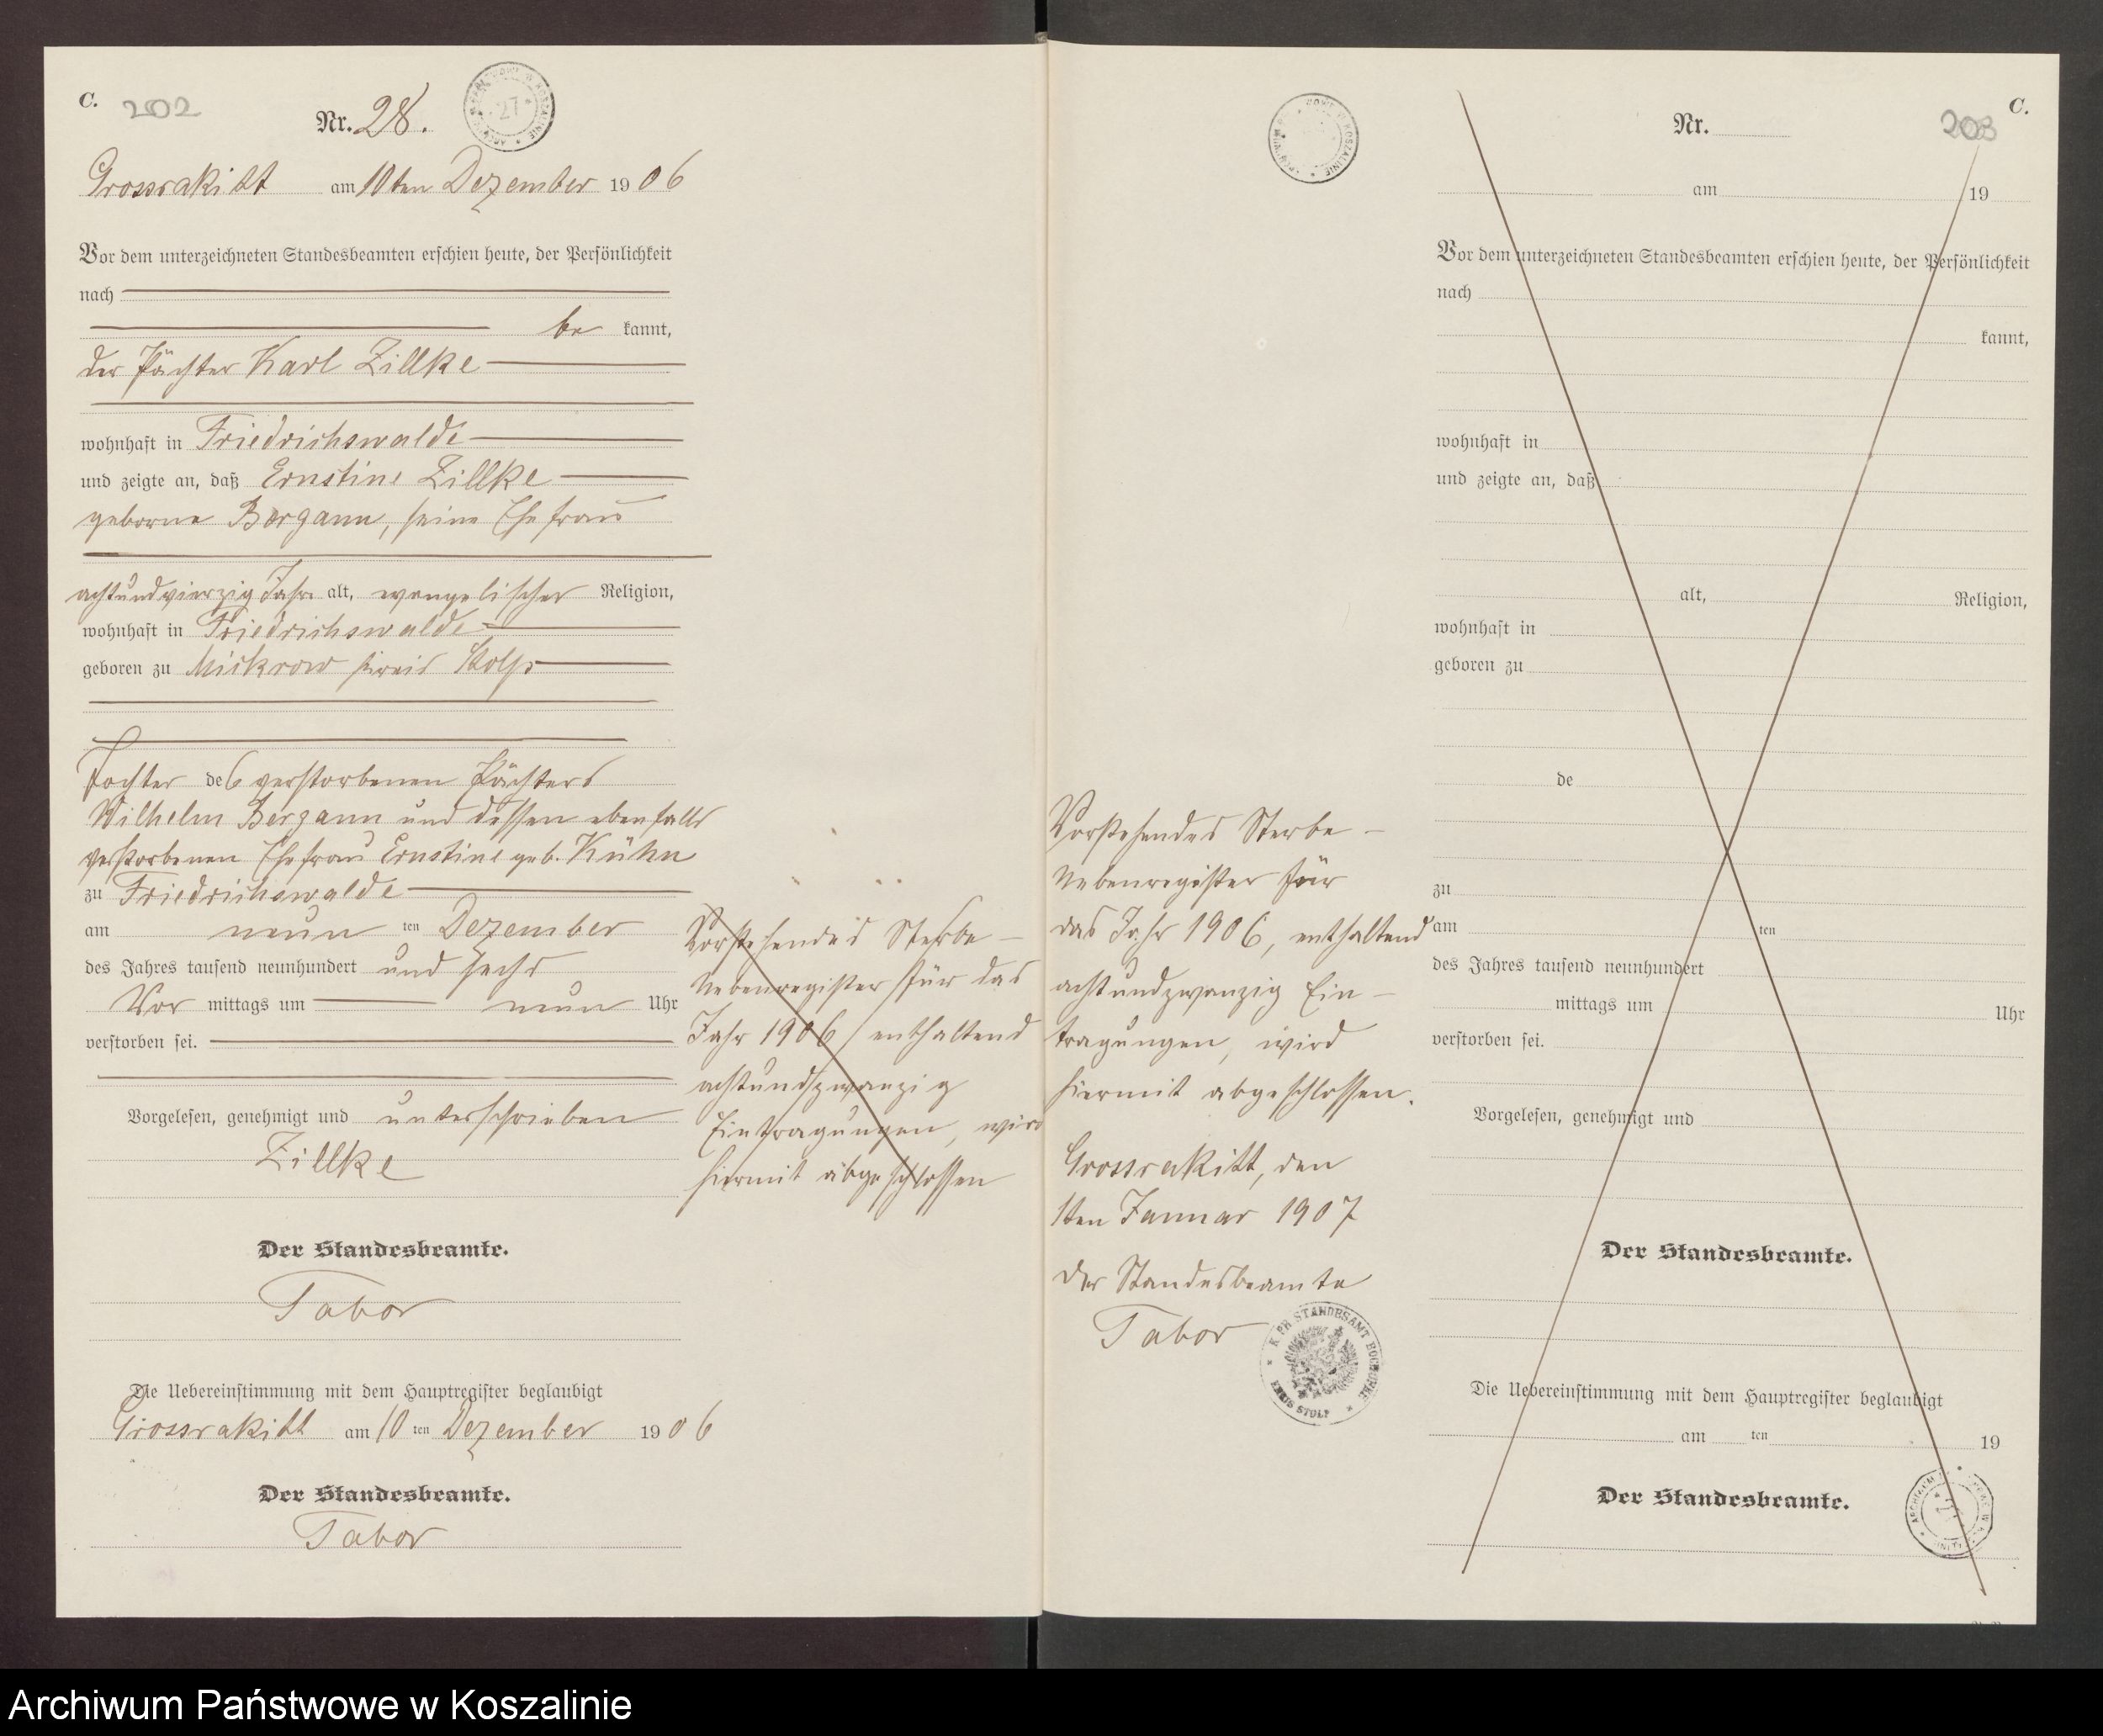 C.
202
Nr. 28.
27
Grossrakitt am 10ten Dezember 1906
Vor dem unterzeichneten Standesbeamten erschien heute, der Persönlichkeit
nach
be kannt,
der Pächter Karl Zillke
wohnhaft in Friedrichswalde
und zeigte an, daß Ernstine Zillke
geborne Bergann, seine Ehefrau
achtundvierzig Jahre alt, evangelischer Religion,
wohnhaft in Friedrichswalde
geboren zu Mickrow Kreis Stolp
Tochter des verstorbenen Pächters
Wilhelm Bergann und dessen ebenfalls
verstorbenen Ehefrau Ernstine geb. Kühn
zu Friedrichswalde
am neun ten Dezember
des Jahres tausend neunhundert und sechs
Vor mittags um neun Uhr
verstorben sei.
Vorgelesen, genehmigt und unterschrieben
Zillke
Der Standesbeamte.
Tabor
Die Uebereinstimmung mit dem Hauptregister beglaubigt
Grossrakitt am 10 ten Dezember 1906
Der Standesbeamte.
Tabor
Vorstehendes Sterbe-
Nebenregister für das
Jahr 1906, enthaltend
achtundzwanzig
Eintragungen, wird
hiermit abgeschlossen
Vorstehendes Sterbe-
Nebenregister für
das Jahr 1906, enthaltend
achtundzwanzig Ein-
tragungen, wird
hiermit abgeschlossen.
Grossrakitt, den
1ten Januar 1907
Der Standesbeamte
Tabor
K. PR. STANDESAMT
KREIS STOLP
C.
203
Nr.
am 19
Vor dem unterzeichneten Standesbeamten erschien heute, der Persönlichkeit
nach
kannt,
wohnhaft in
und zeigte an, daß
alt, Religion,
wohnhaft in
geboren zu
de
zu
am ten
des Jahres tausend neunhundert
mittags um Uhr
verstorben sei.
Vorgelesen, genehmigt und
Der Standesbeamte.
Die Uebereinstimmung mit dem Hauptregister beglaubigt
am ten 19
Der Standesbeamte.
Archiwum Państwowe w Koszalinie